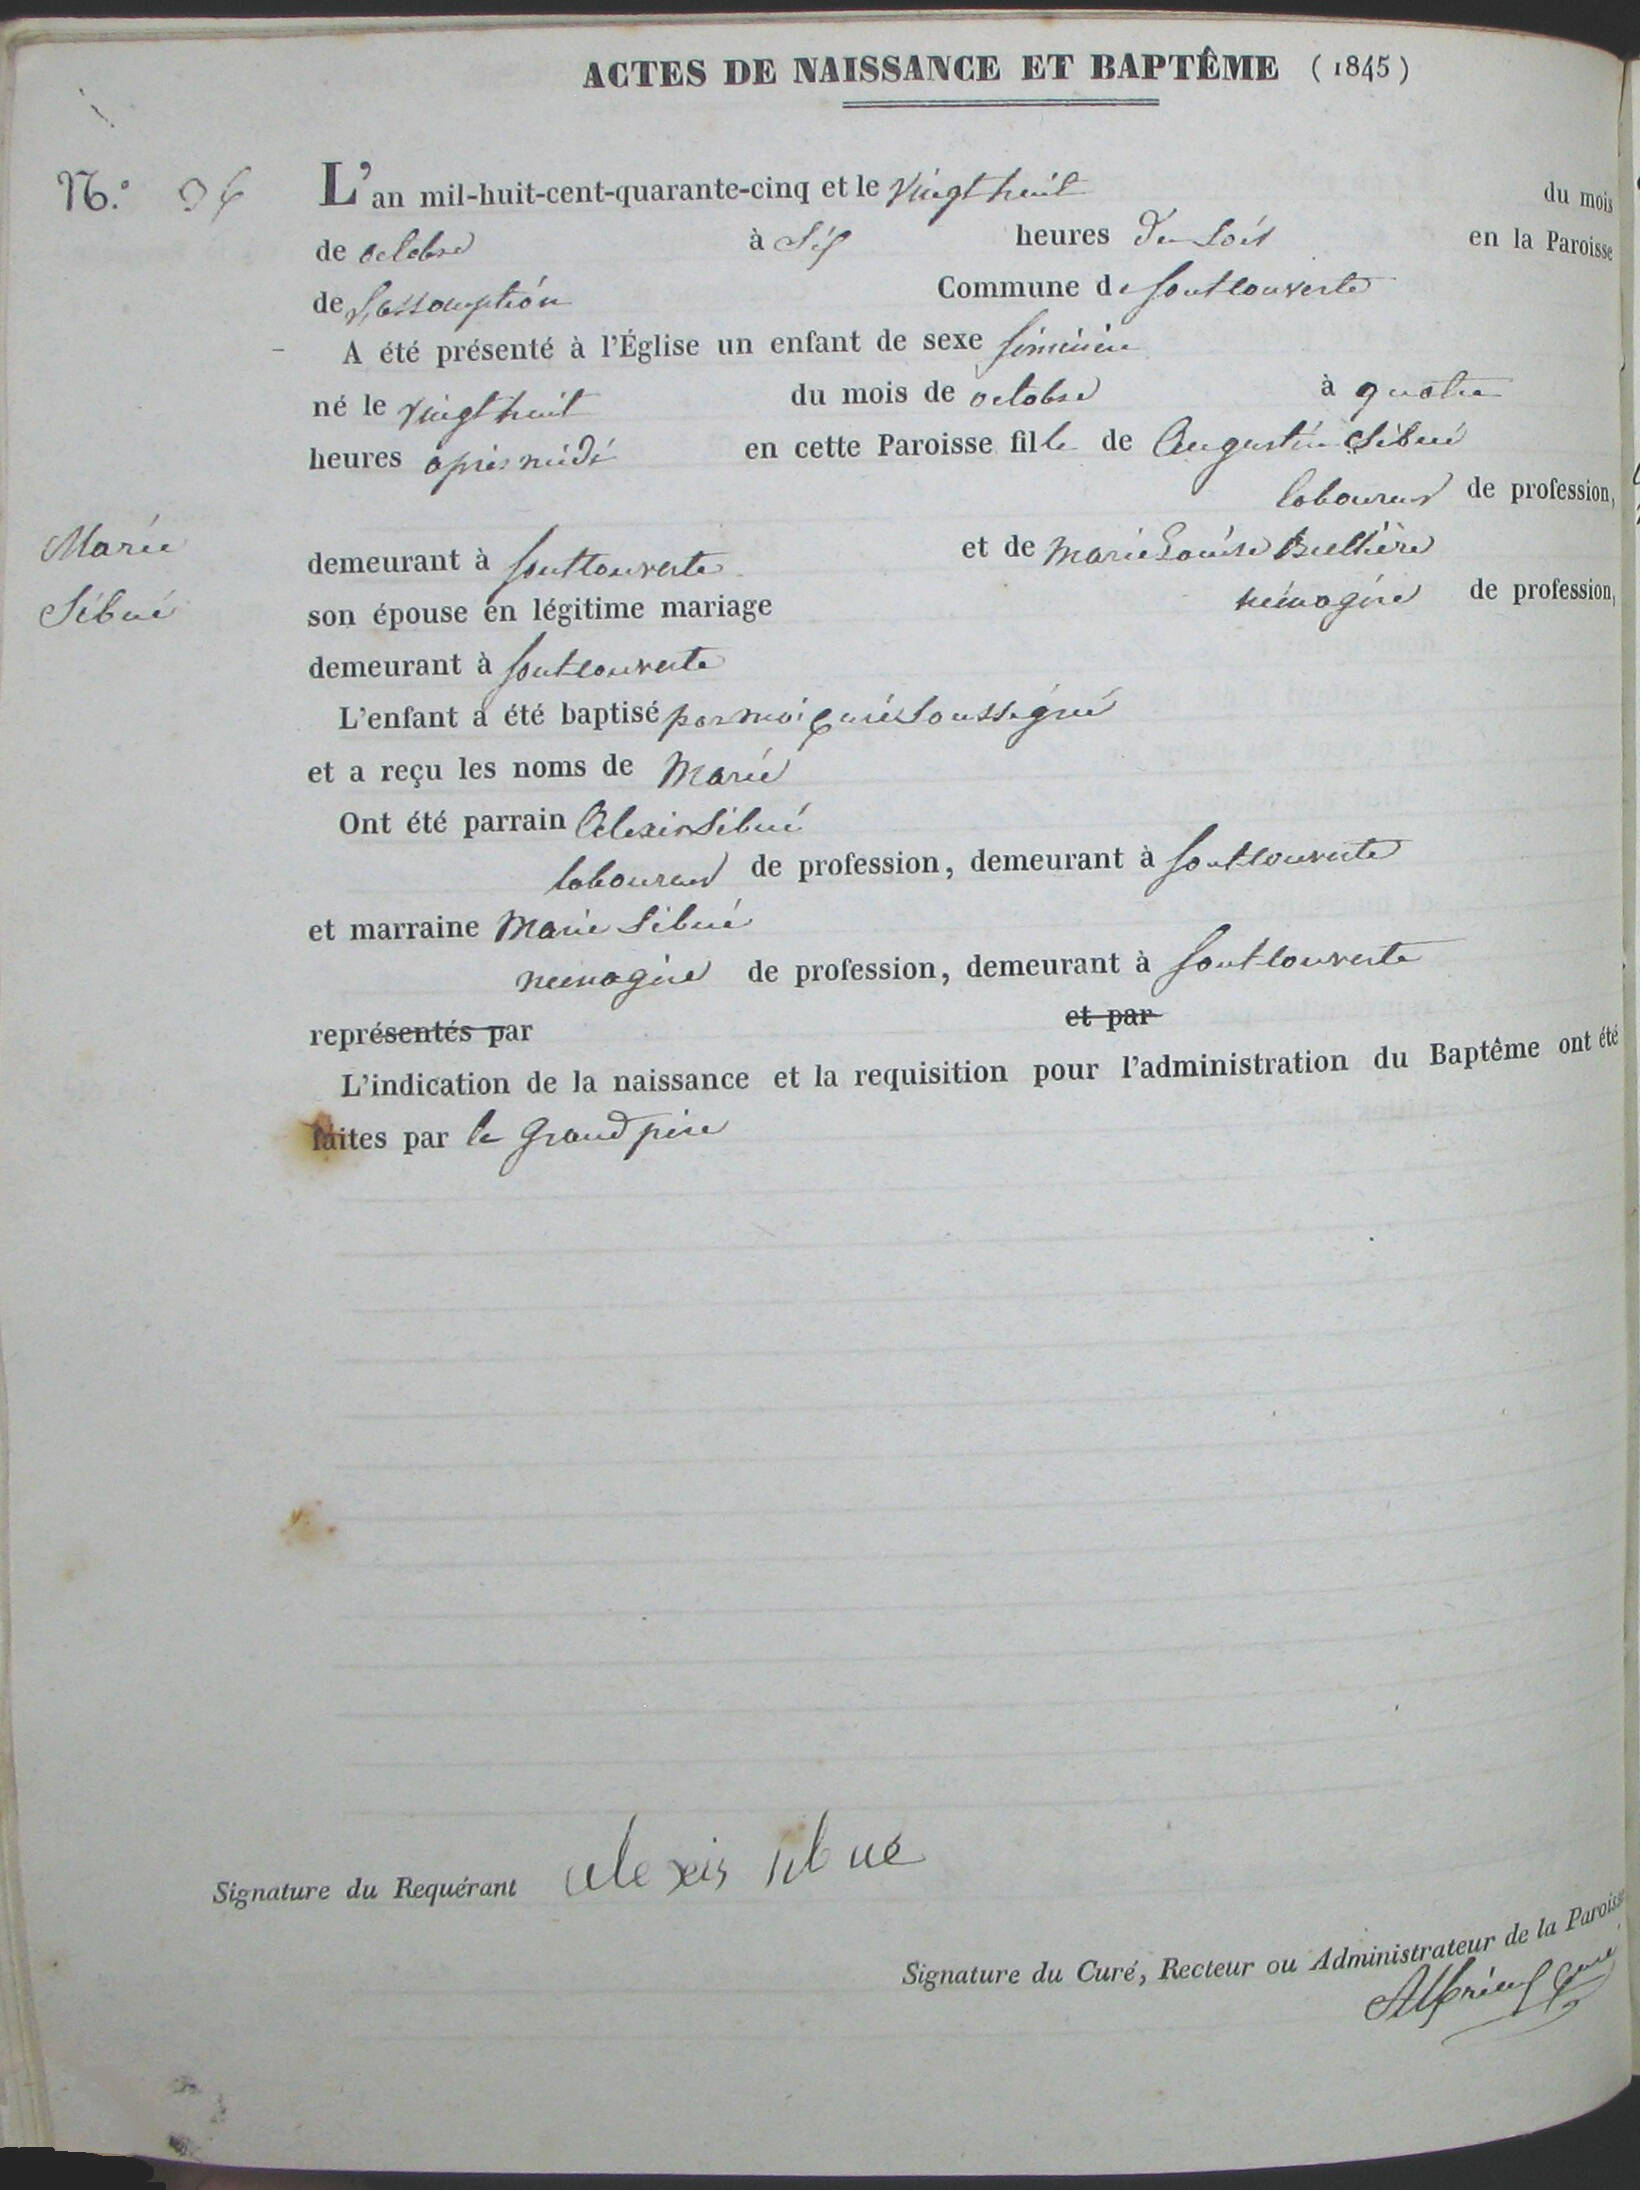 ACTES DE NAISSANCE ET BAPTÊME (1845)
N.º 34 L'an mil-huit-cent-quarante-cinq et le vingt huit du mois
de octobre à Six heures du Soir en la Paroisse
de L'assomption Commune de fontcouverte
A été présenté à l'Église un enfant de sexe féminin
né le vingt huit du mois de octobre à quatre
heures après midi en cette Paroisse fille de Augustin Sibué
laboureur de profession,
Marie demeurant à fontcouverte et de Marie Louise
Sibué son épouse en légitime mariage ménagère de profession,
demeurant à fontcouverte
L'enfant a été baptisé par moi Curé Soussigné
et a reçu les noms de Marie
Ont été parrain Alexis Sibué
laboureur de profession, demeurant à fontcouverte
et marraine Marie Sibué
menagère de profession, demeurant à fontcouverte
représentés par et par
L'indication de la naissance et la requisition pour l'administration du Baptême ont été
faites par le Grand père
Signature du Requérant alexis sibué
Signature du Curé, Recteur ou Administrateur de la Paroisse
Curé